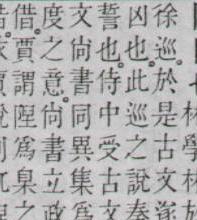 林學林
徐巡於是古文遂
凶也。此巡之說奏
誓也。侍中受古文
文尙書同異集爲
度之意。尙書立政
借。賈謂陛爲臬之